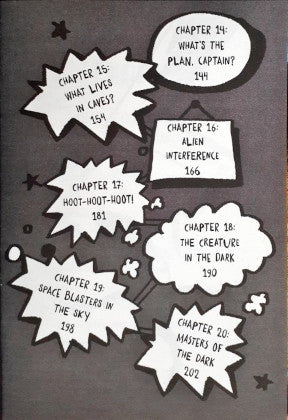 CHAPTER 14:
WHAT'S THE
PLAN, CAPTAIN?
144
CHAPTER 15:
WHAT LIVES
IN CAVES?
154
CHAPTER 16:
ALIEN
INTERFERENCE
166
CHAPTER 17:
HOOT-HOOT-HOOT!
181
CHAPTER 18:
THE CREATURE
IN THE DARK
190
CHAPTER 19:
SPACE BLASTERS IN
THE SKY
198
CHAPTER 20:
MASTERS OF
THE DARK
202